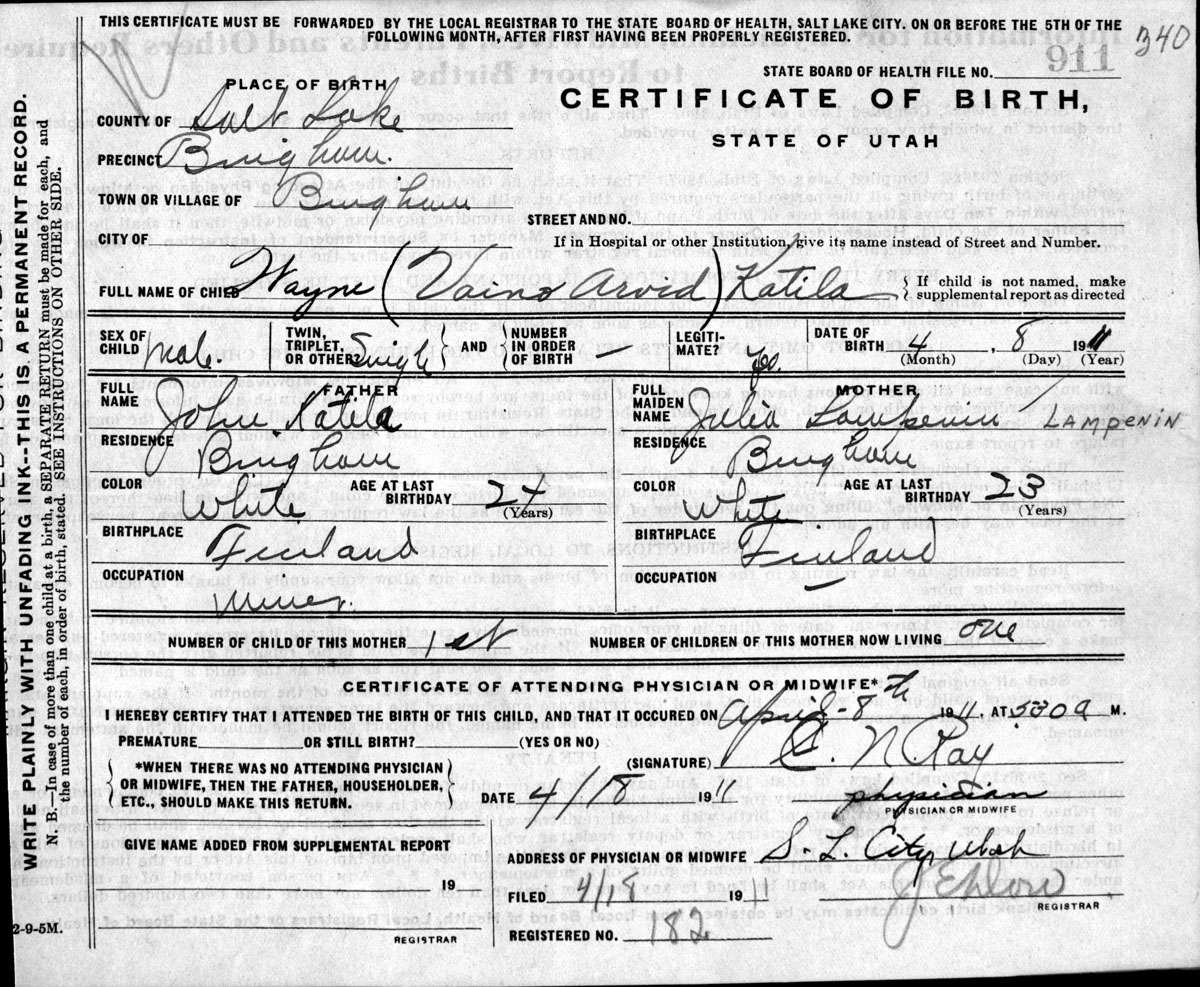 THIS CERTIFICATE MUST BE FORWARDED BY THE LOCAL REGISTRAR TO THE STATE BOARD OF HEALTH, SALT LAKE CITY, ON OR BEFORE THE 5TH OF THE
FOLLOWING MONTH, AFTER FIRST HAVING BEEN PROPERLY REGISTERED.
340
911
STATE BOARD OF HEALTH FILE NO.
PLACE OF BIRTH
CERTIFICATE OF BIRTH,
STATE OF UTAH
COUNTY OF Salt Lake
PRECINCT Bingham.
TOWN OR VILLAGE OF Bingham
STREET AND NO.
CITY OF
If in Hospital or other Institution, give its name instead of Street and Number.
FULL NAME OF CHILD Wayne (Vaino Arvid) Katila
If child is not named, make
supplemental report as directed
SEX OF CHILD Male.
TWIN, TRIPLET, OR OTHER? Single
AND NUMBER IN ORDER OF BIRTH
LEGITIMATE? Yes.
DATE OF BIRTH 4, 8 1911
(Month) (Day) (Year)
FATHER
FULL NAME John Katila
RESIDENCE Bingham
COLOR White AGE AT LAST BIRTHDAY 24
(Years)
BIRTHPLACE Finland
OCCUPATION Miner.
MOTHER
FULL MAIDEN NAME Julia Lampenin / LAMPENIN
RESIDENCE Bingham
COLOR White AGE AT LAST BIRTHDAY 23
(Years)
BIRTHPLACE Finland
OCCUPATION
NUMBER OF CHILD OF THIS MOTHER 1st NUMBER OF CHILDREN OF THIS MOTHER NOW LIVING one
CERTIFICATE OF ATTENDING PHYSICIAN OR MIDWIFE*
I HEREBY CERTIFY THAT I ATTENDED THE BIRTH OF THIS CHILD, AND THAT IT OCCURED ON April-8th 1911, AT 530 a M.
PREMATURE OR STILL BIRTH? (YES OR NO)
(SIGNATURE) C. N. Ray
*WHEN THERE WAS NO ATTENDING PHYSICIAN
OR MIDWIFE, THEN THE FATHER, HOUSEHOLDER,
ETC., SHOULD MAKE THIS RETURN.
DATE 4/18 1911
physician
PHYSICIAN OR MIDWIFE
GIVE NAME ADDED FROM SUPPLEMENTAL REPORT
19
REGISTRAR
ADDRESS OF PHYSICIAN OR MIDWIFE S. L. City, Utah
FILED 4/18 1911
REGISTRAR
REGISTERED NO. 182
WRITE PLAINLY WITH UNFADING INK--THIS IS A PERMANENT RECORD.
N. B.—In case of more than one child at a birth, a SEPARATE RETURN must be made for each, and
the number of each, in order of birth, stated. (SEE INSTRUCTIONS ON OTHER SIDE.
2-9-5M.